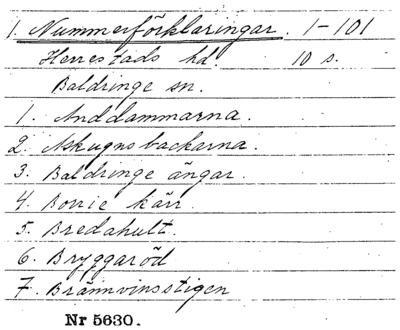 1. Nummerförklaringar. 1-101
Herrestads hd. 10 s.
Baldringe sn.
1. Anddammarna.
2. Askugnsbackarna.
3. Baldringe ängar.
4. Borrie kärr.
5. Bredahult.
6. Bryggaröd
7. Brännvinsstigen
Nr 5630.